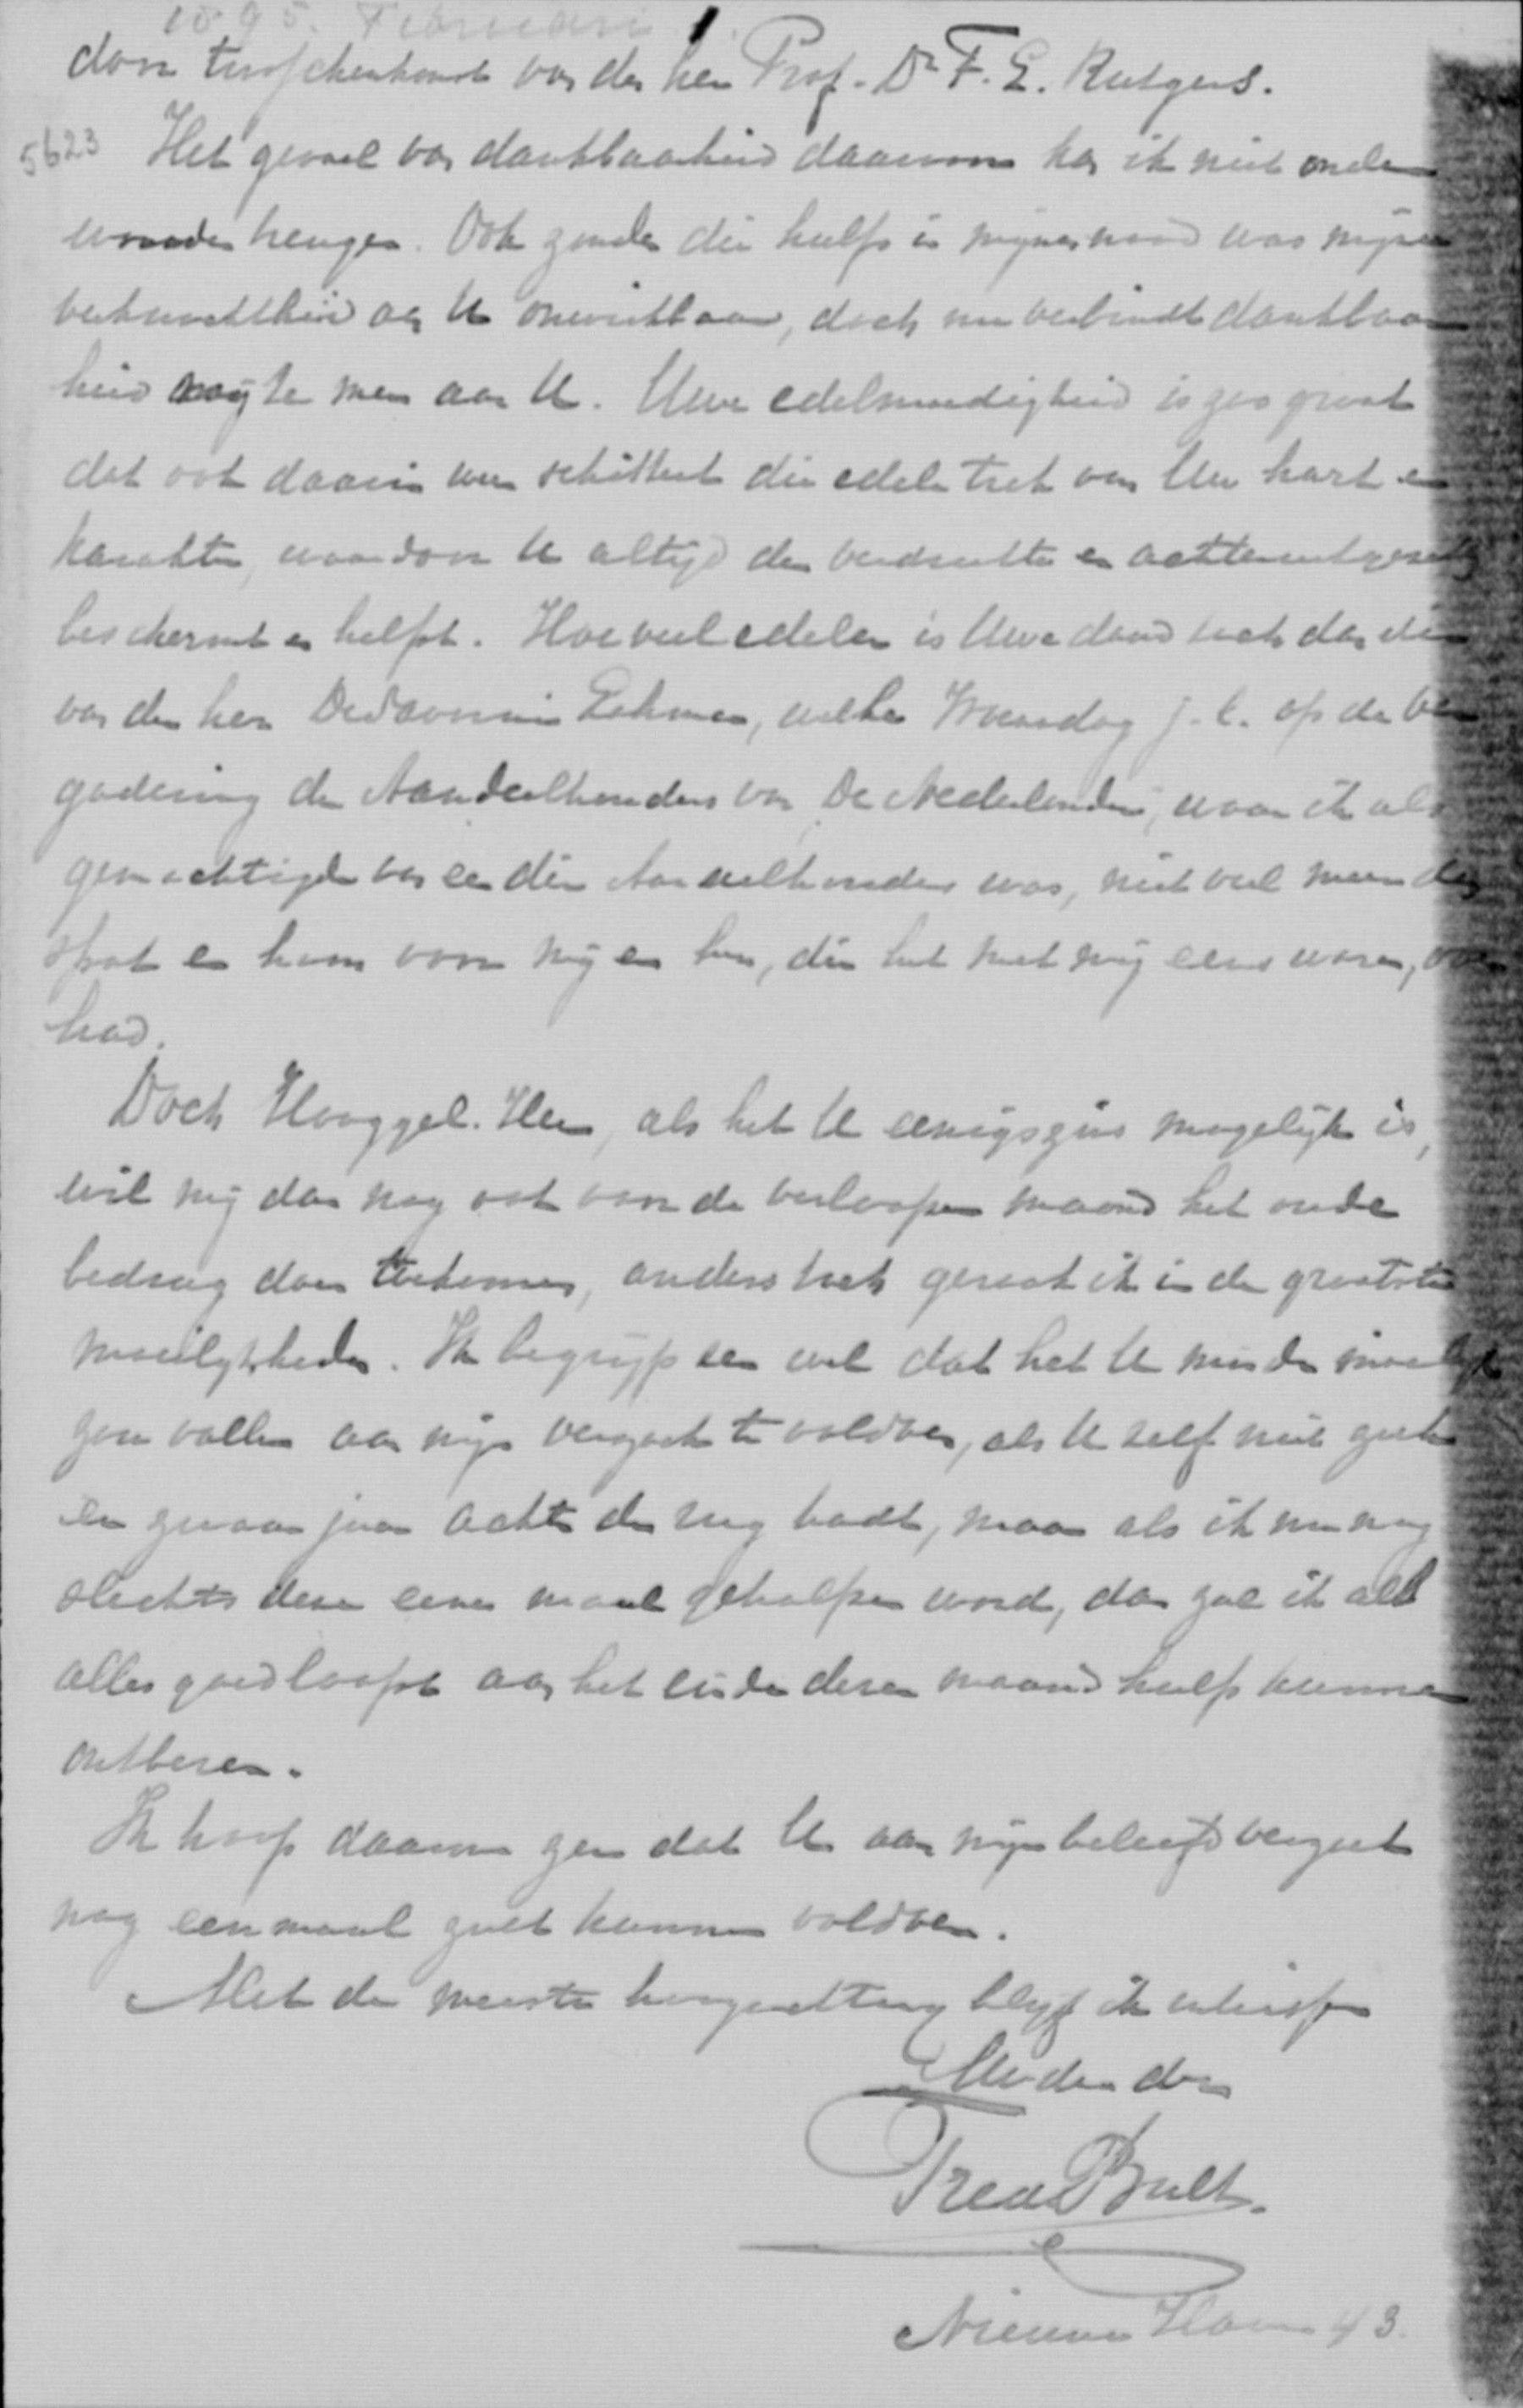 1895. Februari 1.
door tusschenkomst van den heer Prof. Dr F. L. Rutgers.
5623 Het gevoel van dankbaarheid daarvoor kan ik niet onder
woorden brengen. Ook zonder die hulp in mijnen nood was mijne
verknochtheid aan U onwrikbaar, doch nu verbindt dankbaar
heid mij te meer aan U. Uwe edelmoedigheid is zoo groot
dat ook daarin weer schittert die edele trek van Uw hart en
karakter, waardoor U altijd den verdrukte en achteruitgezette
beschermt en helpt. Hoeveel edeler is Uwe daad toch dan die
van den heer De Savornin Lohman, welke Woensdag j.l. op de ver
gadering der Aandeelhouders van De Nederlander, waar ik als
gemachtigde van een dier Aandeelhouders was, niet veel meer dan
spot en hoon voor mij en hen, die het met mij eens waren, over
had.
Doch Hooggel. Heer, als het U eenigszins mogelijk is,
wil mij dan nog ook voor de verloopen maand het oude
bedrag doen toekomen, anders toch geraak ik in de grootste
moeilijkheden. Ik begrijp zeer wel dat het U minder moeilijk
zou vallen aan mijn verzoek te voldoen, als U zelf niet zulk
een zwaar jaar achter den rug hadt, maar als ik nu nog
slechts deze eene maal geholpen word, dan zal ik als
alles goed loopt aan het einde dezer maand hulp kunnen
ontberen.
Ik hoop daarom zeer dat U aan mijn beleefd verzoek
nog eenmaal zult kunnen voldoen.
Met de meeste hoogachting blijf ik inliggend
Uw dw dr
Fred Bult.
Nieuwe Haven 43.